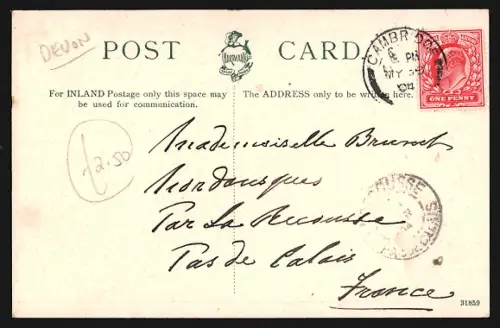 DEVON
POST CARD
For INLAND Postage only this space may
be used for communication.
The ADDRESS only to be written here.
CAMBRIDGE
MY
04
ONE PENNY
2.50
Mademoiselle Brunet
Nordausques
Par La Recousse
Pas de Calais
France
PAS DE CALAIS
31859